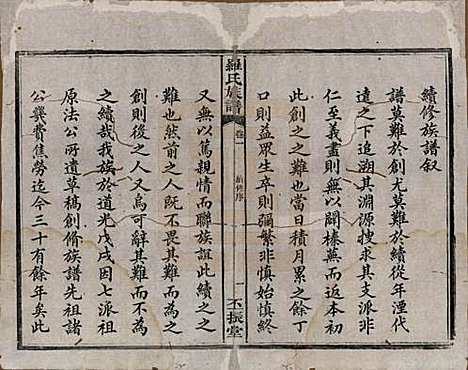 續修族譜叙
譜莫難於創尤莫難於續從年湮代
遠之下追溯其淵源搜求其支派非
仁至義盡則無以闢榛蕪而返本初
此創之之難也當日積月累之餘丁
口則益眾生卒則彌繁非慎始慎終
羅氏族譜
卷一
續修序
一
丕振堂
又無以篤親情而聯族誼此續之之
難也然前之人既不畏其難而為其
創則後之人又烏可辭其難而不為
之續哉我族於道光戊戌因七派祖
原法公所遺草稿創脩族譜先祖諸
公糞費焦勞迄今三十有餘年矣此